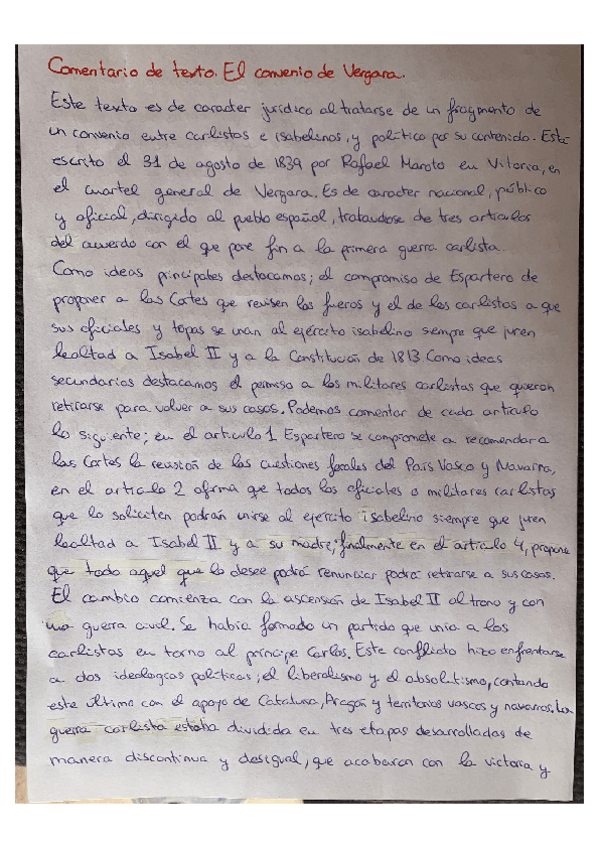 Comentario de texto. El convenio de Vergara.
Este texto es de caracter jurídico al tratarse de un fragmento de
un convenio entre carlistas e isabelinos, y político por su contenido. Está
escrito el 31 de agosto de 1839 por Rafael Maroto en Vitoria, en
el cuartel general de Vergara. Es de caracter nacional, público
y oficial, dirigido al pueblo español, tratandose de tres artículos
del acuerdo con el que pone fin a la primera guerra carlista.
Como ideas principales destacamos; el compromiso de Espartero de
proponer a las Cortes que revisen los fueros y el de los carlistas a que
sus oficiales y topas se unan al ejército isabelino siempre que juren
lealtad a Isabel II y a la Constitución de 1813 Como ideas
secundarias destacamos el permiso a los militares carlistas que quieran
retirarse para volver a sus casas. Podemos comentar de cada artículo
lo siguiente; en el artículo 1 Espartero se compromete a recomendar a
las Cortes la revisión de las cuestiones forales del País Vasco y Navarra,
en el artículo 2 afirma que todos los oficiales o militares carlistas
que lo soliciten podrán unirse al ejército isabelino siempre que juren
lealtad a Isabel II y a su madre; finalmente en el artículo 4, propone
que todo aquel que lo desee podrá renunciar podrá retirarse a sus casas.
El cambio comienza con la ascensión de Isabel II al trono y con
una guerra civil. Se había formado un partido que unía a los
carlistas en torno al príncipe Carlos. Este conflicto hizo enfrentarse
a dos ideologías políticas; el liberalismo y el absolutismo, contando
este último con el apoyo de Cataluña, Aragón y territorios vascos y navarros. La
guerra carlista estaba dividida en tres etapas desarrolladas de
manera discontinua y desigual, que acabaron con la victoria y